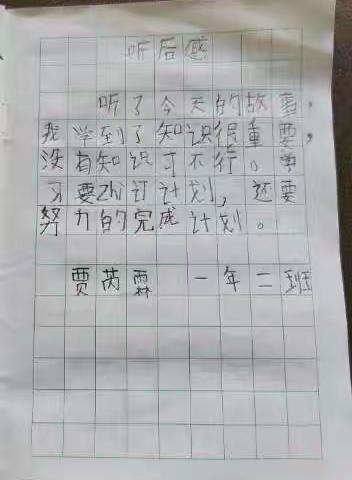 听后感
听了今天的故事，
我学到了知识很重要，
没有知识可不行。学
习要制订计划，还要
努力的完成计划。
贾芮霖 一年二班